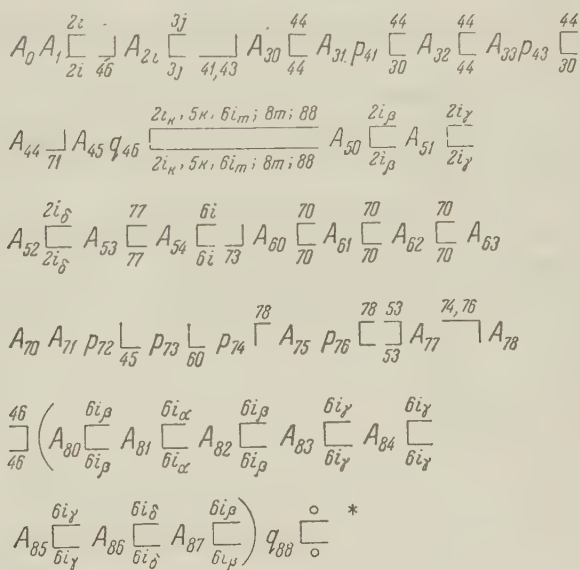 A_0 A_1 ⊏^{2i}_{2i} ⅃_{46} A_{2i} ⊏^{3j}_{3j} ⅃_{41,43} A_{30} ⊏^{44}_{44} A_{31} p_{41} ⊏^{44}_{30} A_{32} ⊏^{44}_{44} A_{33} p_{43} ⊏^{44}_{30}
A_{44} ⅃_{71} A_{45} q_{46} ⊏^{2i_к, 5к, 6i_m; 8m; 88}_{2i_к, 5к, 6i_m; 8m; 88} A_{50} ⊏^{2i_β}_{2i_β} A_{51} ⊏^{2i_γ}_{2i_γ}
A_{52} ⊏^{2i_δ}_{2i_δ} A_{53} ⊏^{77}_{77} A_{54} ⊏^{6i}_{6i} ⅃_{73} A_{60} ⊏^{70}_{70} A_{61} ⊏^{70}_{70} A_{62} ⊏^{70}_{70} A_{63}
A_{70} A_{71} p_{72} L_{45} p_{73} L_{60} p_{74} Γ^{78} A_{75} p_{76} ⊏^{78} ⊐^{53}_{53} A_{77} ⅂^{74,76} A_{78}
⊐^{46}_{46} (A_{80} ⊏^{6i_β}_{6i_β} A_{81} ⊏^{6i_α}_{6i_α} A_{82} ⊏^{6i_β}_{6i_β} A_{83} ⊏^{6i_γ}_{6i_γ} A_{84} ⊏^{6i_γ}_{6i_γ}
A_{85} ⊏^{6i_γ}_{6i_γ} A_{86} ⊏^{6i_δ}_{6i_δ} A_{87} ⊏^{6i_β}_{6i_β}) q_{88} ⊏^{○}_{○} *